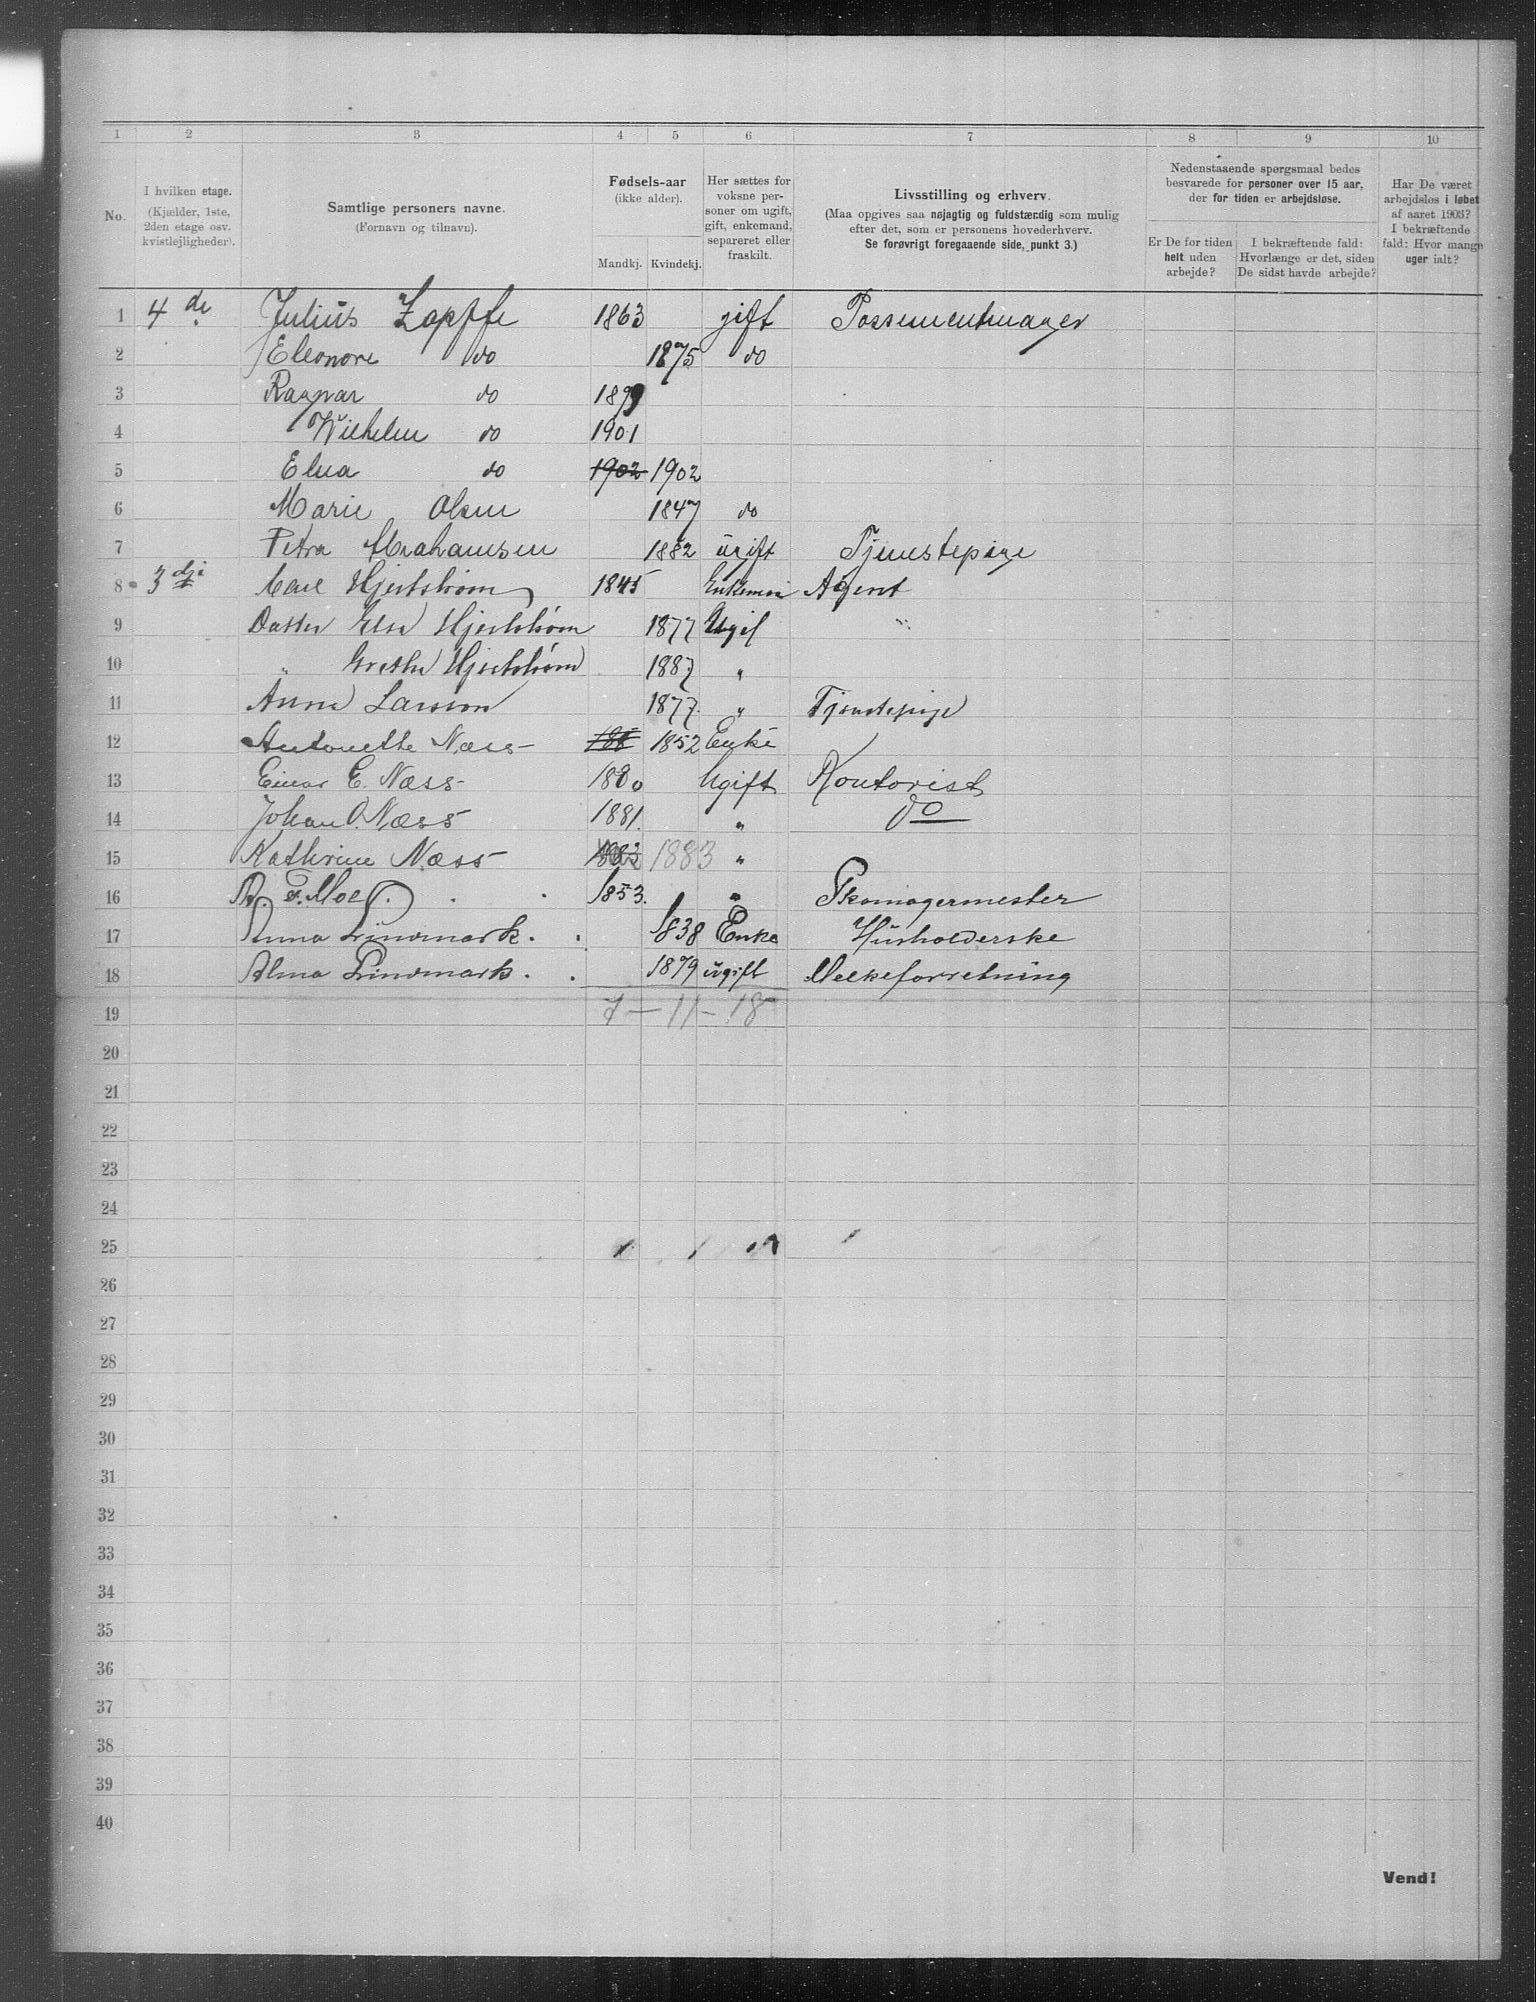 1 2 3 4 5 6 7 8 9 10
No.
I hvilken etage.
(Kjælder, 1ste,
2den etage osv.
kvistlejligheder).
Samtlige personers navne.
(Fornavn og tilnavn).
Fødsels-aar
(ikke alder).
Mandkj. Kvindekj.
Her sættes for
voksne per-
soner om ugift,
gift, enkemand,
separeret eller
fraskilt.
Livsstilling og erhverv.
(Maa opgives saa nøjagtig og fuldstændig som mulig
efter det, som er personens hovederhverv.
Se forøvrigt foregaaende side, punkt 3.)
Nedenstaaende spørgsmaal bedes
besvarede for personer over 15 aar,
der for tiden er arbejdsløse.
Er De for tiden
helt uden
arbejde?
I bekræftende fald:
Hvorlænge er det, siden
De sidst havde arbejde?
Har De været
arbejdsløs i løbet
af aaret 1903?
I bekræftende
fald: Hvor mange
uger ialt?
1 4de Julius Zapffe 1863 gift Possementmager
2 Eleonore do 1875 do
3 Ragnar do 1899
4 Wilhelm do 1901
5 Elna do 1902 1902
6 Marie Olsen 1847 do
7 Petra Abrahamsen 1882 ugift Tjenstepige
8 3dje Carl Hjertstrøm 1845 Enkeman Agent
9 Datter Elsa Hjertstrøm 1877 Ugif "
10 " Grethe Hjertstrøm 1887 "
11 Anna Larsson 1877 " Tjenstepige
12 Antonette Næss 188 1852 Enke
13 Einar E. Næss 1880 Ugift Kontorist
14 Johan O. Næss 1881. " do
15 Kathrine Næss 1883 "
16 F. Moe 1853. " Skomagermester
17 Anna Lindmark. 1838 Enke Husholderske
18 Alma Lindmark. 1879 ugift Melkeforretning
19 7 — 11 — 18
20
21
22
23
24
25
26
27
28
29
30
31
32
33
34
35
36
37
38
39
40
Vend!